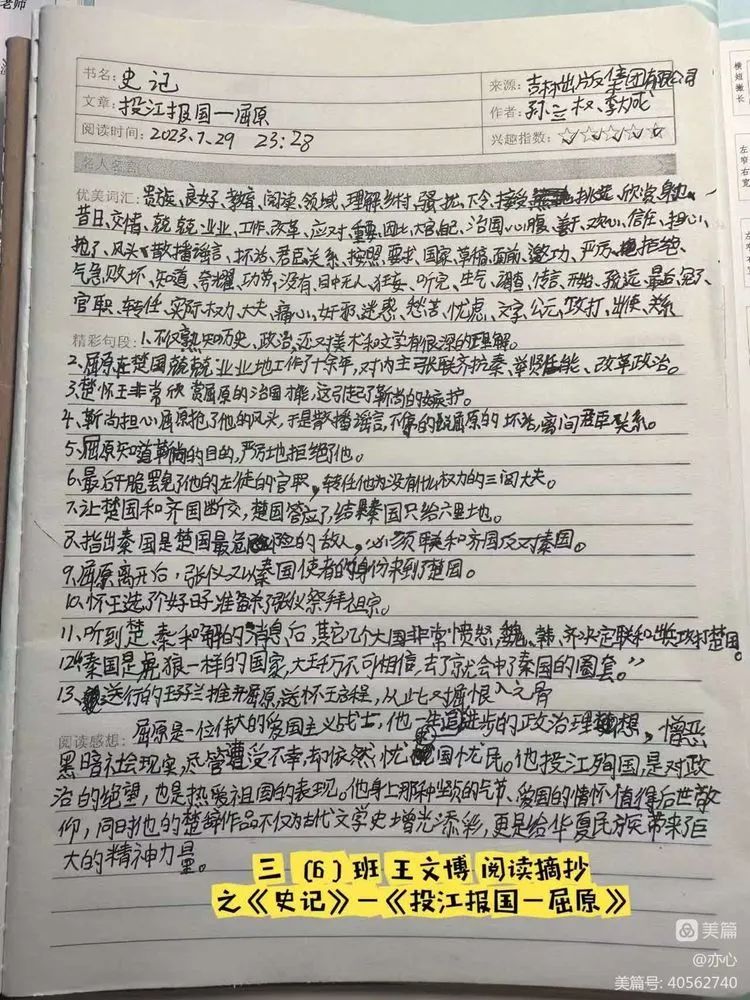 老师
书名：史记
来源：吉林出版集团有限公司
文章：投江报国一屈原
作者：孙立权、李大成
阅读时间：2023.7.29 23:28
兴趣指数：☆☆☆☆☆
名人名言
优美词汇：贵族、良好、教育、阅读、领域、理解、乡村、骚扰、下令、接受、挑选、欣赏、身边、
昔日、交情、兢兢业业、工作、改革、应对、重要、因此、大官、自己、治国、心腹、善于、欢心、信任、担心、
抢了、风头、散播谣言、坏话、君臣关系、按照、要求、国家、草稿、面前、邀功、严厉、拒绝、
气急败坏、知道、夸耀、功劳、没有、目中无人、狂妄、听完、生气、调查、传言、开始、疏远、最后、免了、
官职、转任、实际、权力、大夫、痛心、奸邪、迷惑、愁苦、忧虑、文字、公元、攻打、出使、关系
精彩句段：1、不仅熟知历史、政治，还对美术和文学有很深的理解。
2、屈原在楚国兢兢业业地工作了十余年，对内主张联齐抗秦、举贤任能、改革政治。
3、楚怀王非常欣赏屈原的治国才能，这引起了靳尚的嫉妒。
4、靳尚担心屈原抢了他的风头，于是散播谣言，不停的说屈原的坏话，离间君臣关系。
5、屈原知道靳尚的目的，严厉地拒绝了他。
6、最后干脆罢免了他的左徒的官职，转任他为没有什么权力的三闾大夫。
7、让楚国和齐国断交，楚国答应了，结果秦国只给六里地。
8、指出秦国是楚国最危险的敌人，必须联和齐国反对秦国。
9、屈原离开后，张仪又以秦国使者的身份来到了楚国。
10、怀王选了个好日子准备杀了张仪祭拜祖宗。
11、听到楚、秦和解的消息后，其它几个大国非常愤怒，魏、韩、齐决定联和出兵攻打楚国。
12、“秦国是虎狼一样的国家，大王千万不可相信，去了就会中了秦国的圈套。”
13、送行的王子兰推开屈原，送怀王启程，从此又擂恨入骨
阅读感想：屈原是一位伟大的爱国主义战士，他一生追进步的政治理想，憎恶
黑暗社会现实，尽管遭受不幸，却依然忧国忧民。他投江殉国，是对政
治的绝望，也是热爱祖国的表现。他身上那种坚贞的气节、爱国的情怀值得后世敬
仰，同时他的楚辞作品不仅为古代文学史增光添彩，更是给华夏民族带来了巨
大的精神力量。
三（6）班 王文博 阅读摘抄
之《史记》—《投江报国一屈原》
美篇
@亦心
美篇号：40562740
横短撇长
左窄右宽